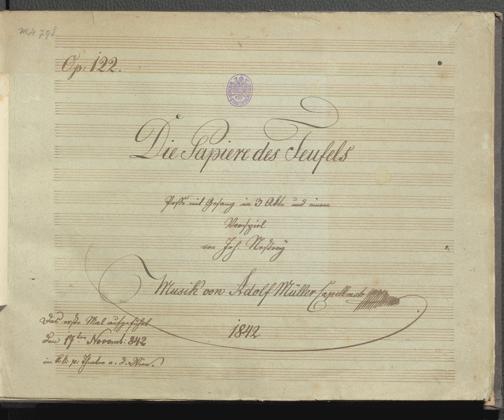 MH 798
Op: 122.
Die Papiere des Teufels
Posse mit Gesang in 3 Akten und einem
Vorspiel
von Joh. Nestroy
Musik von Adolf Müller Capellmstr
1842
Das erste Mal aufgeführt
den 17ten Novemb: 842
im k. k. p: Theater a. d. Wien.